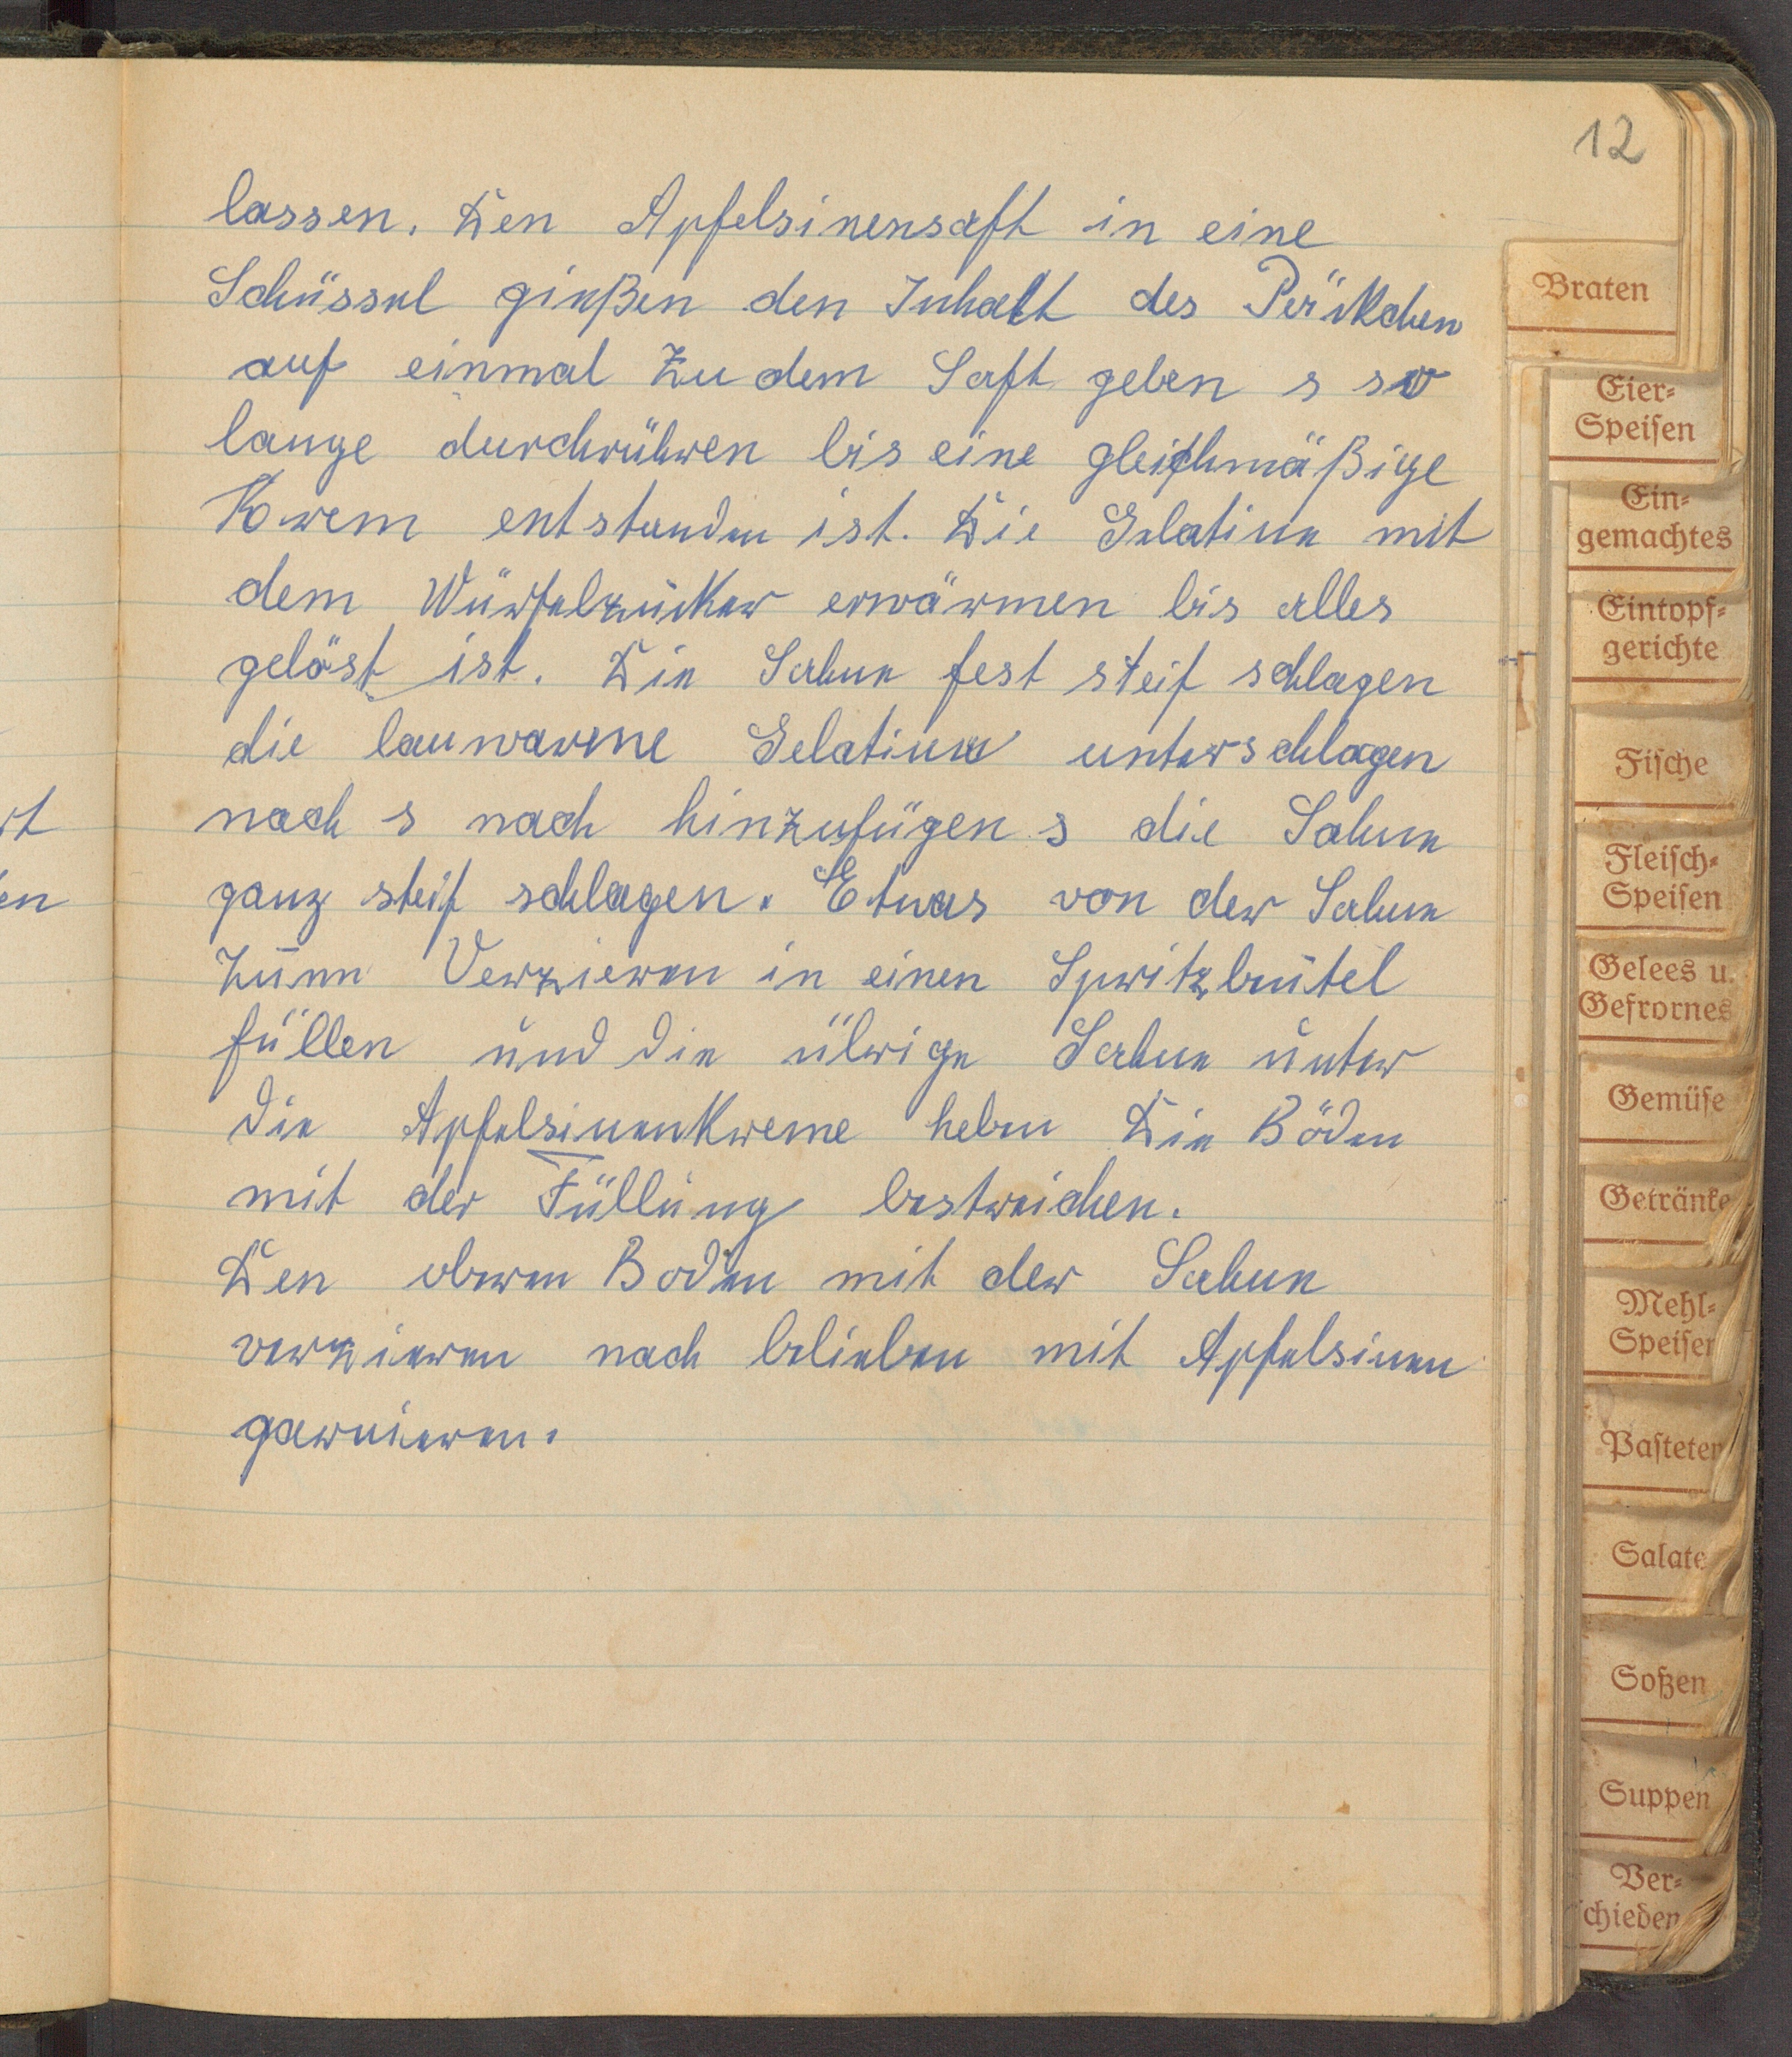 12
lassen. Den Apfelsinensaft in eine
Schüssel gießen den Inhalt des Päckchen
auf einmal zu dem Saft geben s so
lange durchrühren bis eine gleichmäßige
Krem entstanden ist. Die Gelatine mit
dem Würfelzucker erwärmen bis alles
gelöst ist. Die Sahne fest steif schlagen
die lauwarme Gelatine unterschlagen
nach s nach hinzufügen s die Sahne
ganz steif schlagen. Etwas von der Sahne
zum Verzieren in einen Spritzbeutel
füllen und die übrige Sahne unter
die Apfelsinenkreme heben Die Böden
mit der Füllung bestreichen.
Den oberen Boden mit der Sahne
verzieren nach belieben mit Apfelsinen
garnieren.
Braten
Eier-
Speisen
Ein-
gemachtes
Eintopf-
gerichte
Fische
Fleisch-
Speisen
Gelees u.
Gefrornes
Gemüse
Getränke
Mehl-
Speisen
Pasteten
Salate
Soßen
Suppen
Ver-
schieden